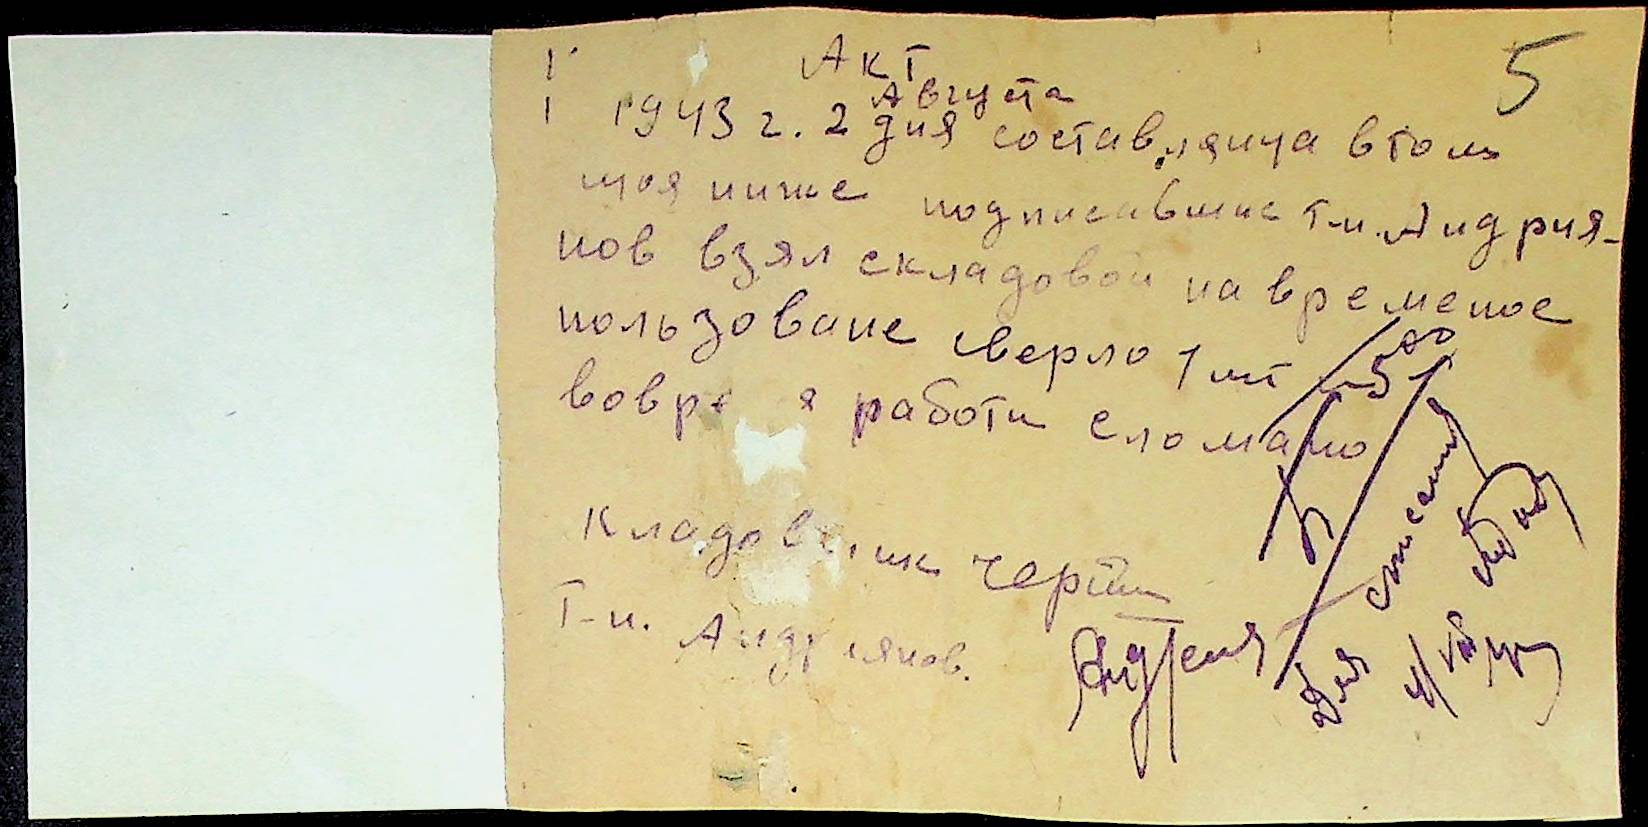 5
Акт
Августа
1943 г. 2 дня составлянца втом
моя ниже подписавшис т-н. Андрия-
нов взял складовой на временое
пользоване сверло 1 шт
вовремя работи сломано
Кладовщик
Т-н. Андриянов.
Для списания